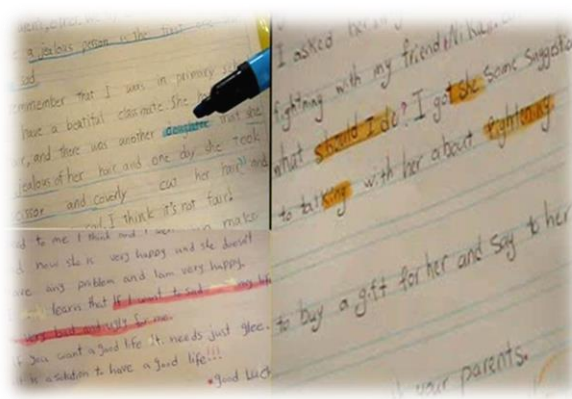 a jealous person is the
sad.
remember that I was in primary
have a beatiful classmate. She
and there was another that she
jealous of her hair and one day she took
and coverly cut her hair and
I think it's not fair!
to me. I think and I
now she is very happy and she doesn't
any problem and Iam very happy.
learn that If I want to sad my life
bad and ugly for me.
you want a good life It needs just glee.
is a solution to have a good life!!!
*good Luck
I asked her
fighting with my friend
what should I do? I got she some suggestion
to talking with her about fightening.
to buy a gift for her and say to her
your parents.